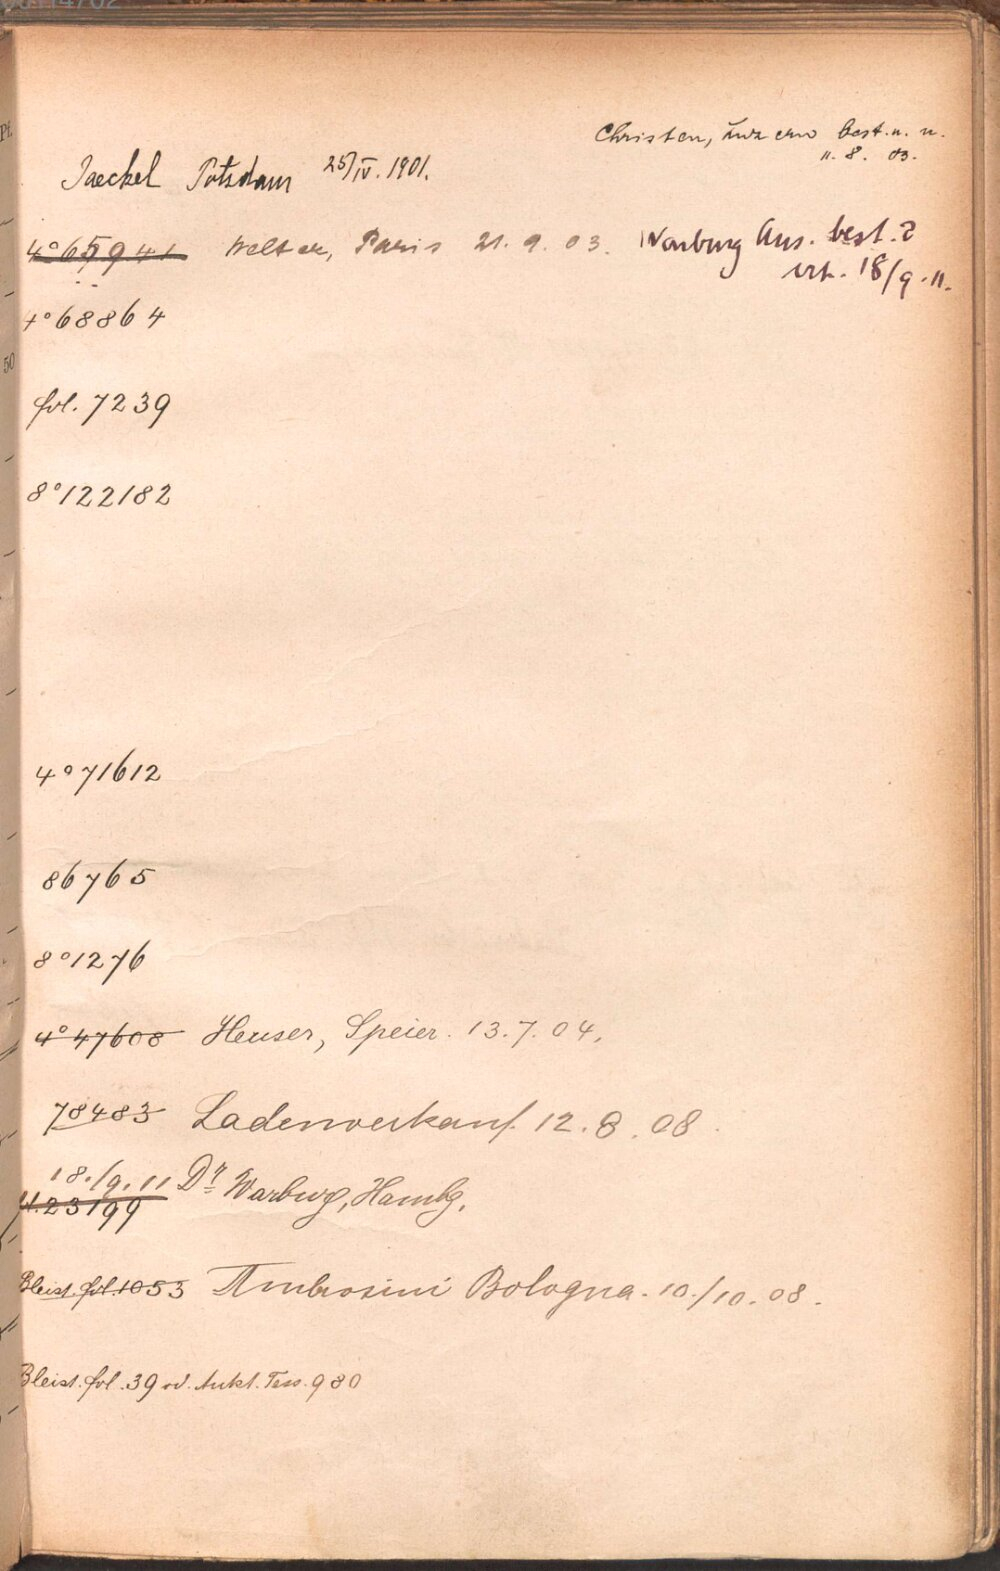 Christen, Luzern best. u. n.
11. 8. 03.
Jaeckel Potsdam 25/IV. 1901.
4° 65941 Welter, Paris 21. 9. 03. Warburg Ans. best. 2
erh. 18/9. 11.
4° 68864
fol. 7239
8° 122182
4° 71612
86765
8° 1276
4° 47608 Heuser, Speier. 13. 7. 04.
78483 Ladenverkauf 12. 8. 08.
18./9. 11 Dr Warburg, Hambg.
23199
Bleist. fol. 1053 Ambrosini Bologna. 10./10. 08.
Bleist. fol. 39 od. Aukt. Tess. 980